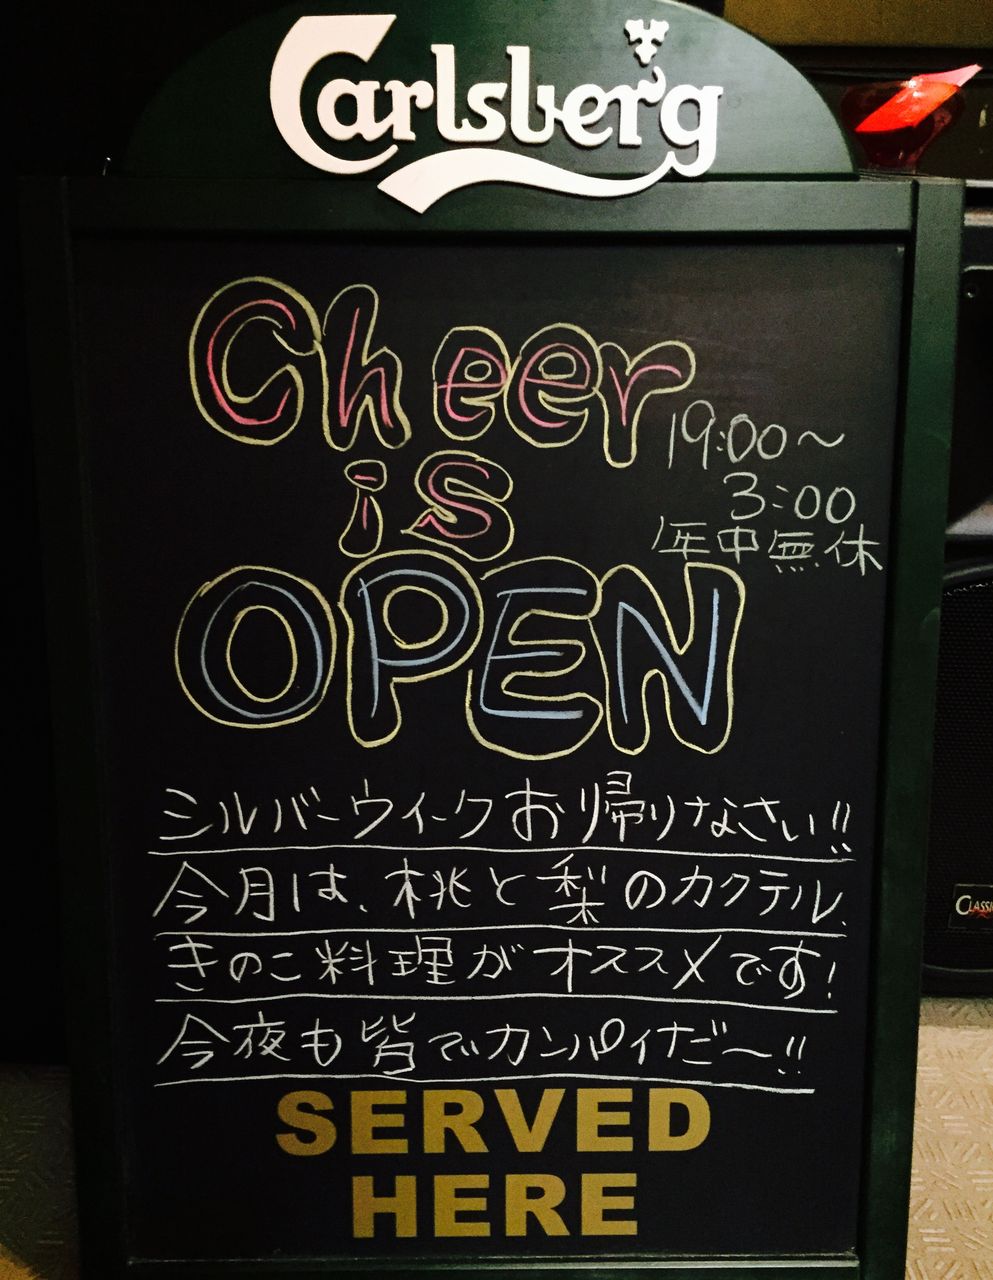 Carlsberg
Cheer
is
OPEN
19:00～
3:00
年中無休
シルバーウィークお帰りなさい!!
今月は、桃と梨のカクテル、
きのこ料理がオススメです!
今夜も皆でカンパイだ〜!!
SERVED
HERE